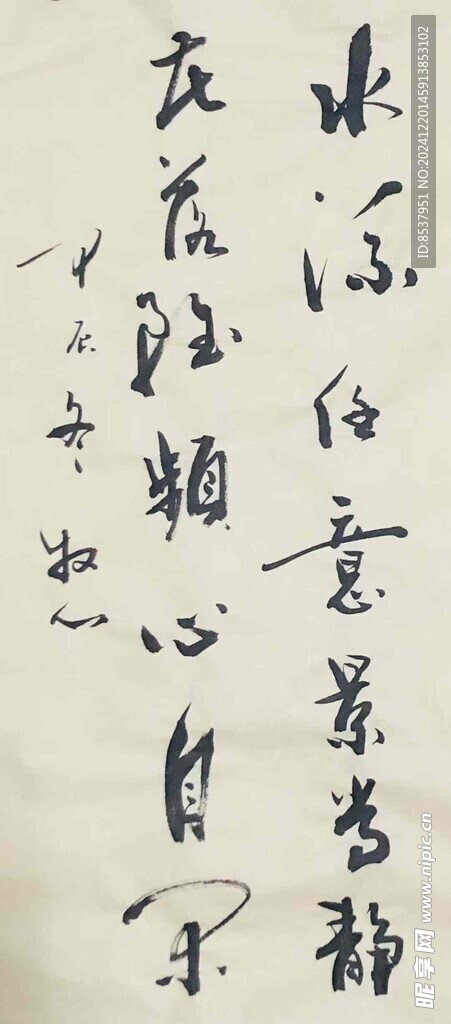 水流任意景常静
花落虽频心自闲
甲辰冬 牧心
ID:8537951 NO:20241220145913853102
昵享网 www.nipic.cn